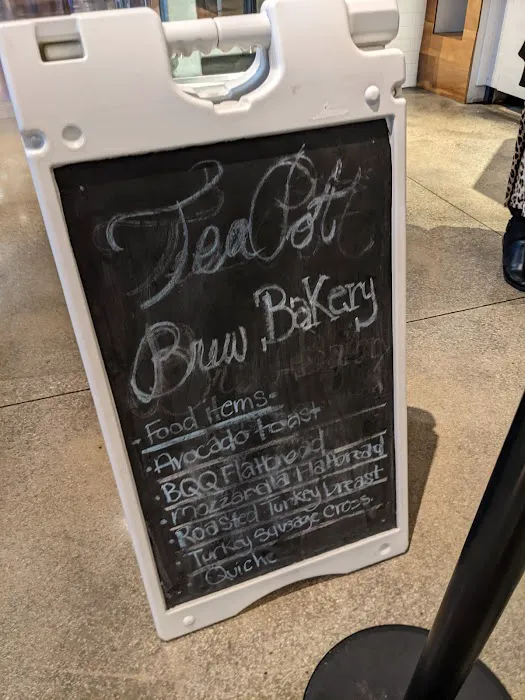 TeaPot
Brew Bakery
-Food items-
·Avocado toast
·BQQ Flatbread
·mozzarella Flatbread
·Roasted Turkey breast
·Turkey Sausage Cross.
Quiche